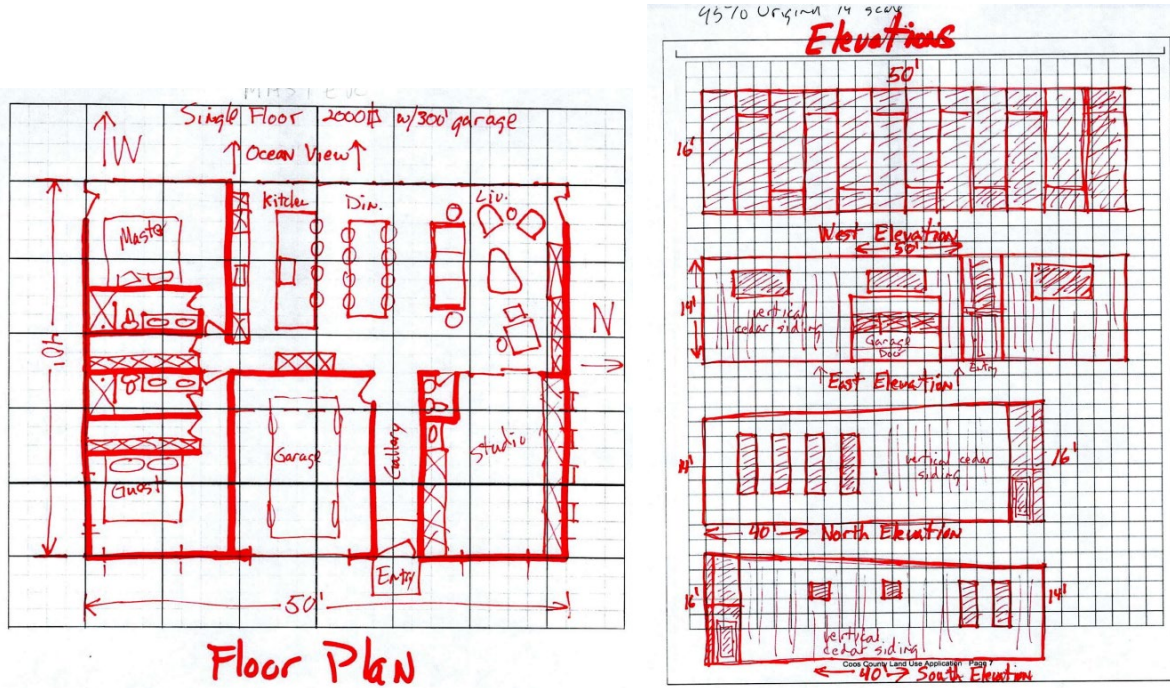 MASTER
Single Floor 2000 w/300' garage
W
↑ Ocean View ↑
Kitchen
Din.
Liv.
Master
N
40'
Garage
Gallery
Studio
Guest
Entry
50'
Floor Plan
95% Original 1/4 scale
Elevations
50'
16'
West Elevation
50'
14'
vertical
cedar siding
Garage
Door
Entry
East Elevation
14'
vertical cedar
siding
16'
40' North Elevation
16'
14'
vertical
cedar siding
Coos County Land Use Application Page 7
40' South Elevation